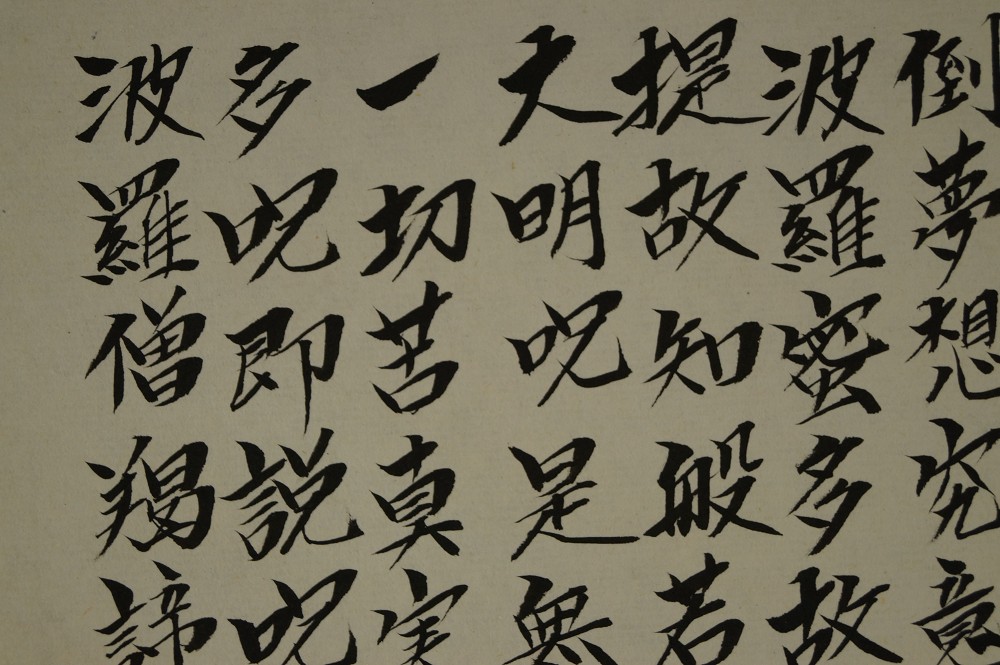 倒夢想究竟
波羅蜜多故
提故知般若
大明呪是無
一切苦真実
多呪即説呪
波羅僧羯諦